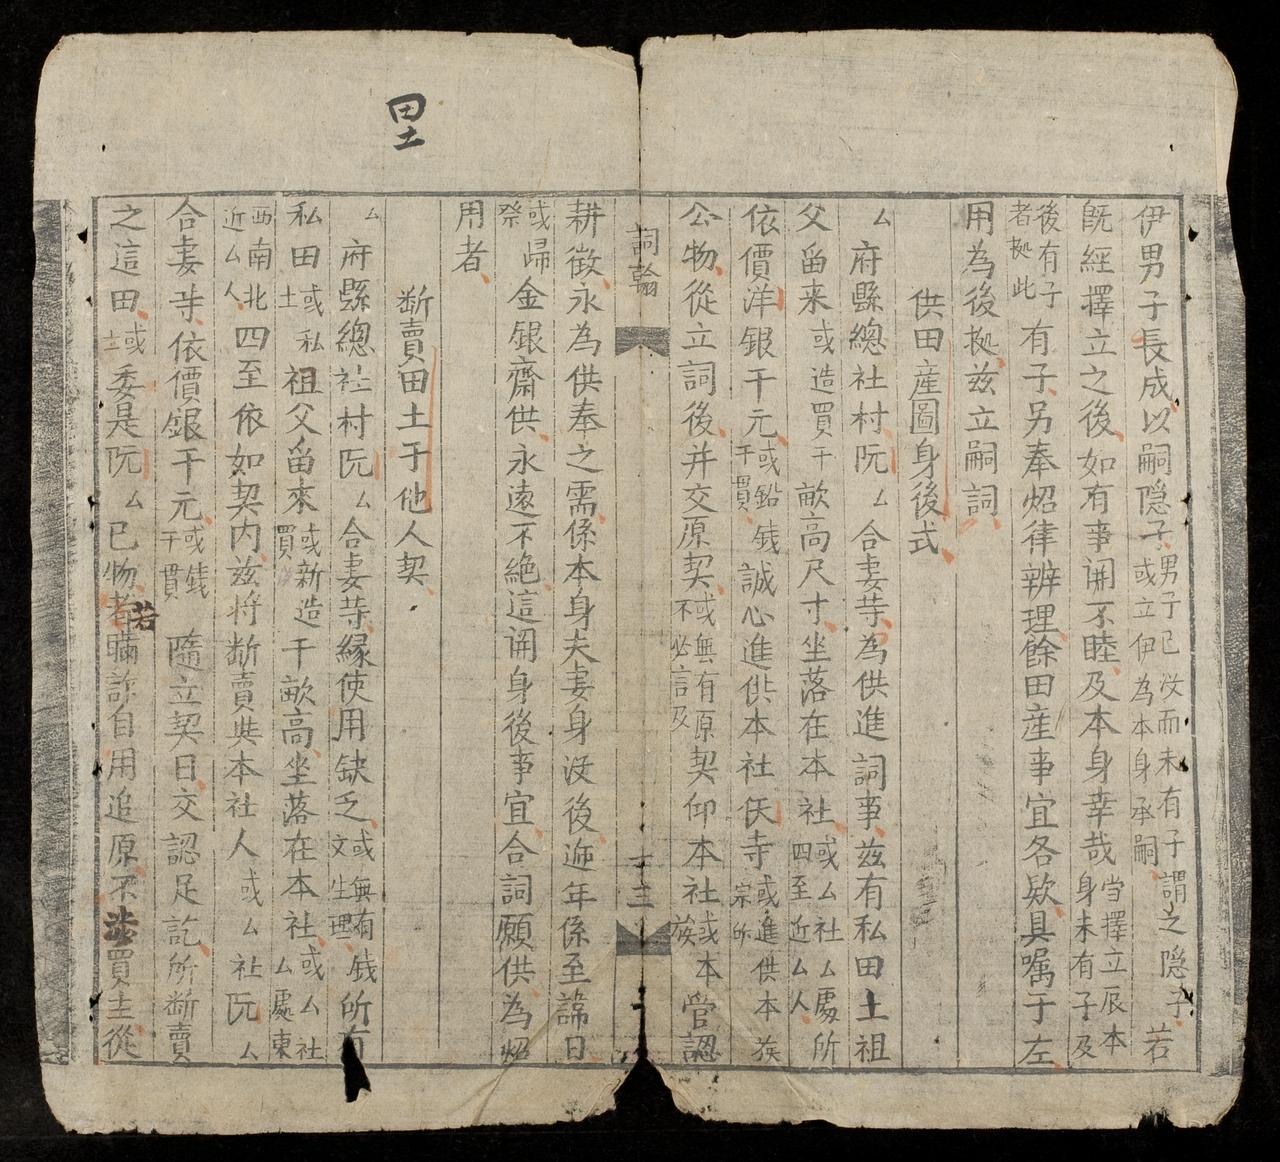 𪽞
伊男子長成以嗣隐子男子已沒而未有子謂之隐子或立伊為本身承嗣若
既經擇立之後如有事開不睦及本身幸哉当擇立辰本身未有子及
後有子者抛此有子另奉炤律辨理餘田産事宜各欵具嘱于左
用為後抛兹立嗣詞
供田産圖身後式
厶府縣總社村阮厶合妻䓁為供進詞事兹有私田土祖
父畱来或造買干畝高尺寸坐落在本社或厶社厶處所四至近厶人
依價洋銀干元或鉛錢干貫誠心進供本社仸寺或進供本族宗所
公物從立詞後并交原契或無有原不必言及契仰本社或本族管認
詞翰
十三
耕徵永為供奉之需係本身夫妻身沒後遞年係至諱日
或祭歸金銀齋供永遠不絶這開身後事宜合詞願供為炤
用者
断賣田土于他人契
厶府縣總社村阮厶合妻䓁縁使用缺乏或無有錢文生理所有
私田或私土祖父畱來或新造買干畝高坐落在本社或厶社厶處東
西南北近厶人四至依如契内兹将断賣與本社人或厶社阮厶
合妻䓁依價銀干元或錢干貫隨立契日交認足訖所断賣
之這田或土委是阮厶已物若瞞詐自用追原不涉買主從
若